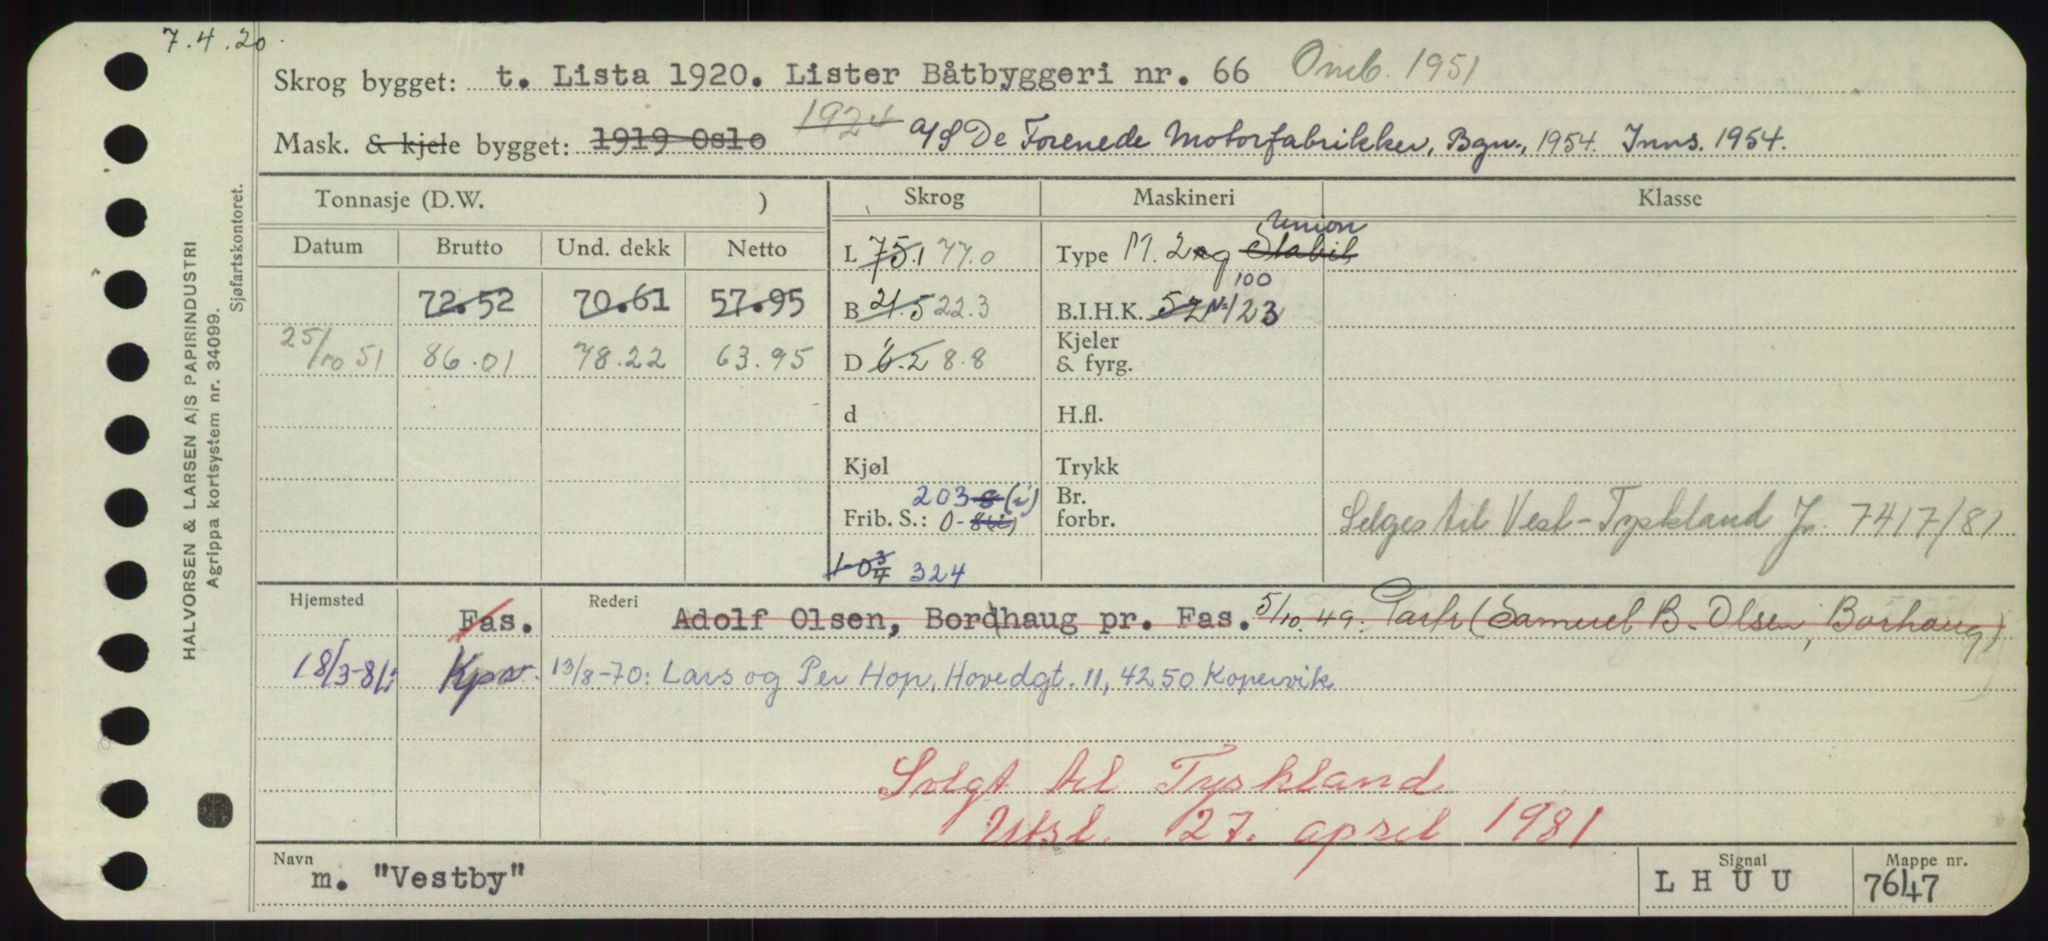 7.4.20.
Skrog bygget: t. Lista 1920. Lister Båtbyggeri nr. 66 Omb. 1951
Mask. & kjele bygget: 1919 Oslo 1924 A/S De Forenede Motorfabrikker, Bgn., 1954. Inns. 1954.
Tonnasje (D.W. )
Skrog
Maskineri
Klasse
Datum Brutto Und. dekk Netto
Union
L 75.1 77.0
Type M. 2 Stabil
100
72.52 70.61 57.95
B 21.5 22.3
B.I.H.K. 57 N. 123
25/10 51 86.01 78.22 63.95
D 8.8
Kjeler & fyrg.
d
H.fl.
Kjøl
Trykk
203 8 (i)
Frib. S.: 0-
Br. forbr.
Selges til Vest-Tyskland Jr. 7417/81
1-0 3/4 324
Hjemsted Fas. Rederi Adolf Olsen, Bordhaug pr. Fas. 5/10.49. Partr (Samuel B. Olsen, Borhaug)
18/3-81: Kpv. 13/8-70: Lars og Per Hop, Hovedgt. 11, 4250 Kopervik
Solgt til Tyskland
Utsl. 27. april 1981
Navn m. "Vestby"
Signal L H U U
Mappe nr. 7647
HALVORSEN & LARSEN A/S PAPIRINDUSTRI
Agrippa kortsystem nr. 34099.
Sjøfartskontoret.